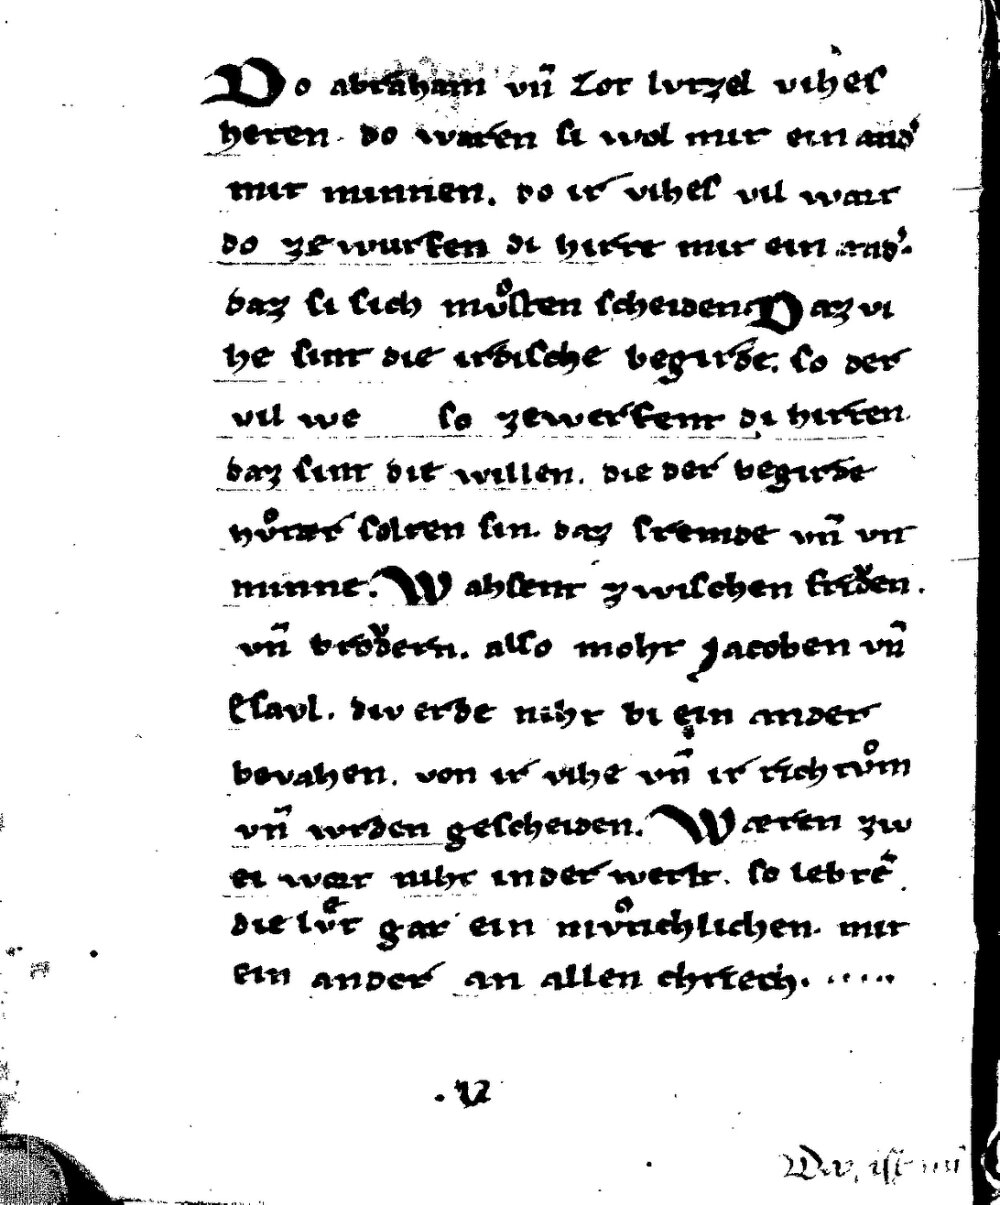 Do abraham vn̄ Lot lvtzel vihes
heten. do waren si wol mit ein and'
mit minnen. do ir vihes vil wart
do zewurfen di hirte mit ein and'.
daz si sich mvͦsten scheiden Daz vi
he sint die irdische begirde. so der
vil we so zewerfent di hirten.
daz sint die willen. die der begirde
hvͦtær solten sin. daz fremde vn̄ vn
minne. Wahsent zwischen friͮden.
vn̄ brvͦdern. also moht Jacoben vn̄
Esavl. div erde niht bi ein ander
bevahen. von ir vihe vn̄ ir richtvͦm
vn̄ wrden gescheiden. Wæren zw
ei wort niht in der werlt. so lebtē
die lvͤt gar ein mvͦtichlichen. mit
ein ander an allen chriech.
. V